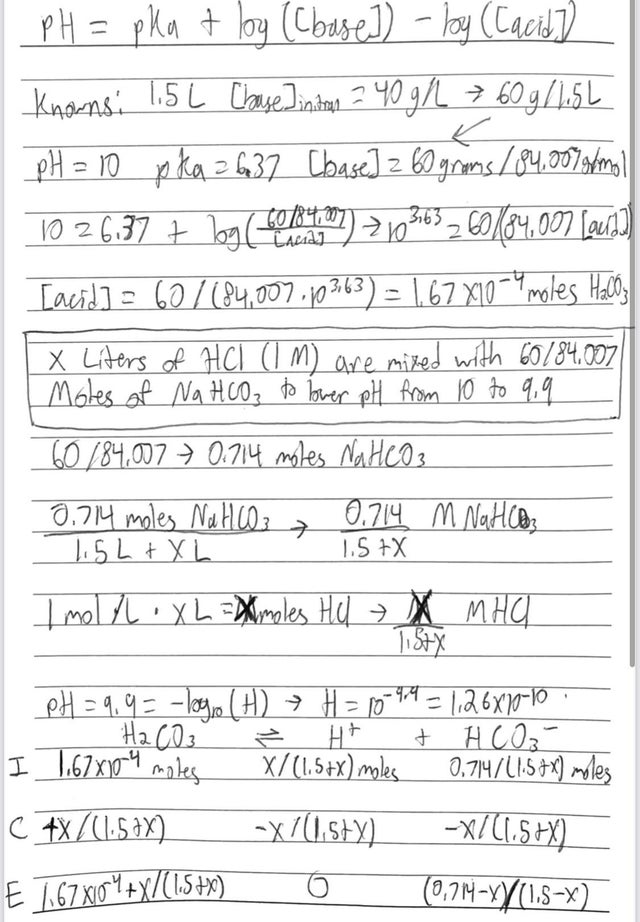 pH = pKa + log([base]) - log([acid])
Knowns: 1.5L [base]initial = 40 g/L → 60g/1.5L
pH = 10 pka = 6.37 [base] = 60 grams/84.007 g/mol
10 = 6.37 + log((60/84.007)/[acid]) → 10^3.63 = 60/(84.007[acid])
[acid] = 60/(84.007·10^3.63) = 1.67x10^-4 moles H2CO3
X Liters of HCl (1 M) are mixed with 60/84.007
Moles of NaHCO3 to lower pH from 10 to 9.9
60/84.007 → 0.714 moles NaHCO3
0.714 moles NaHCO3 / 1.5L + XL → 0.714 / 1.5+X M NaHCO3
1 mol/L · XL = X moles HCl → X / 1.5+X M HCl
pH = 9.9 = -log10(H) → H = 10^-9.9 = 1.26x10^-10
H2CO3 ⇌ H+ + HCO3-
I 1.67x10^-4 moles X/(1.5+X) moles 0.714/(1.5+X) moles
C +X/(1.5+X) -X/(1.5+X) -X/(1.5+X)
E 1.67x10^-4+X/(1.5+X) 0 (0.714-X)/(1.5-X)